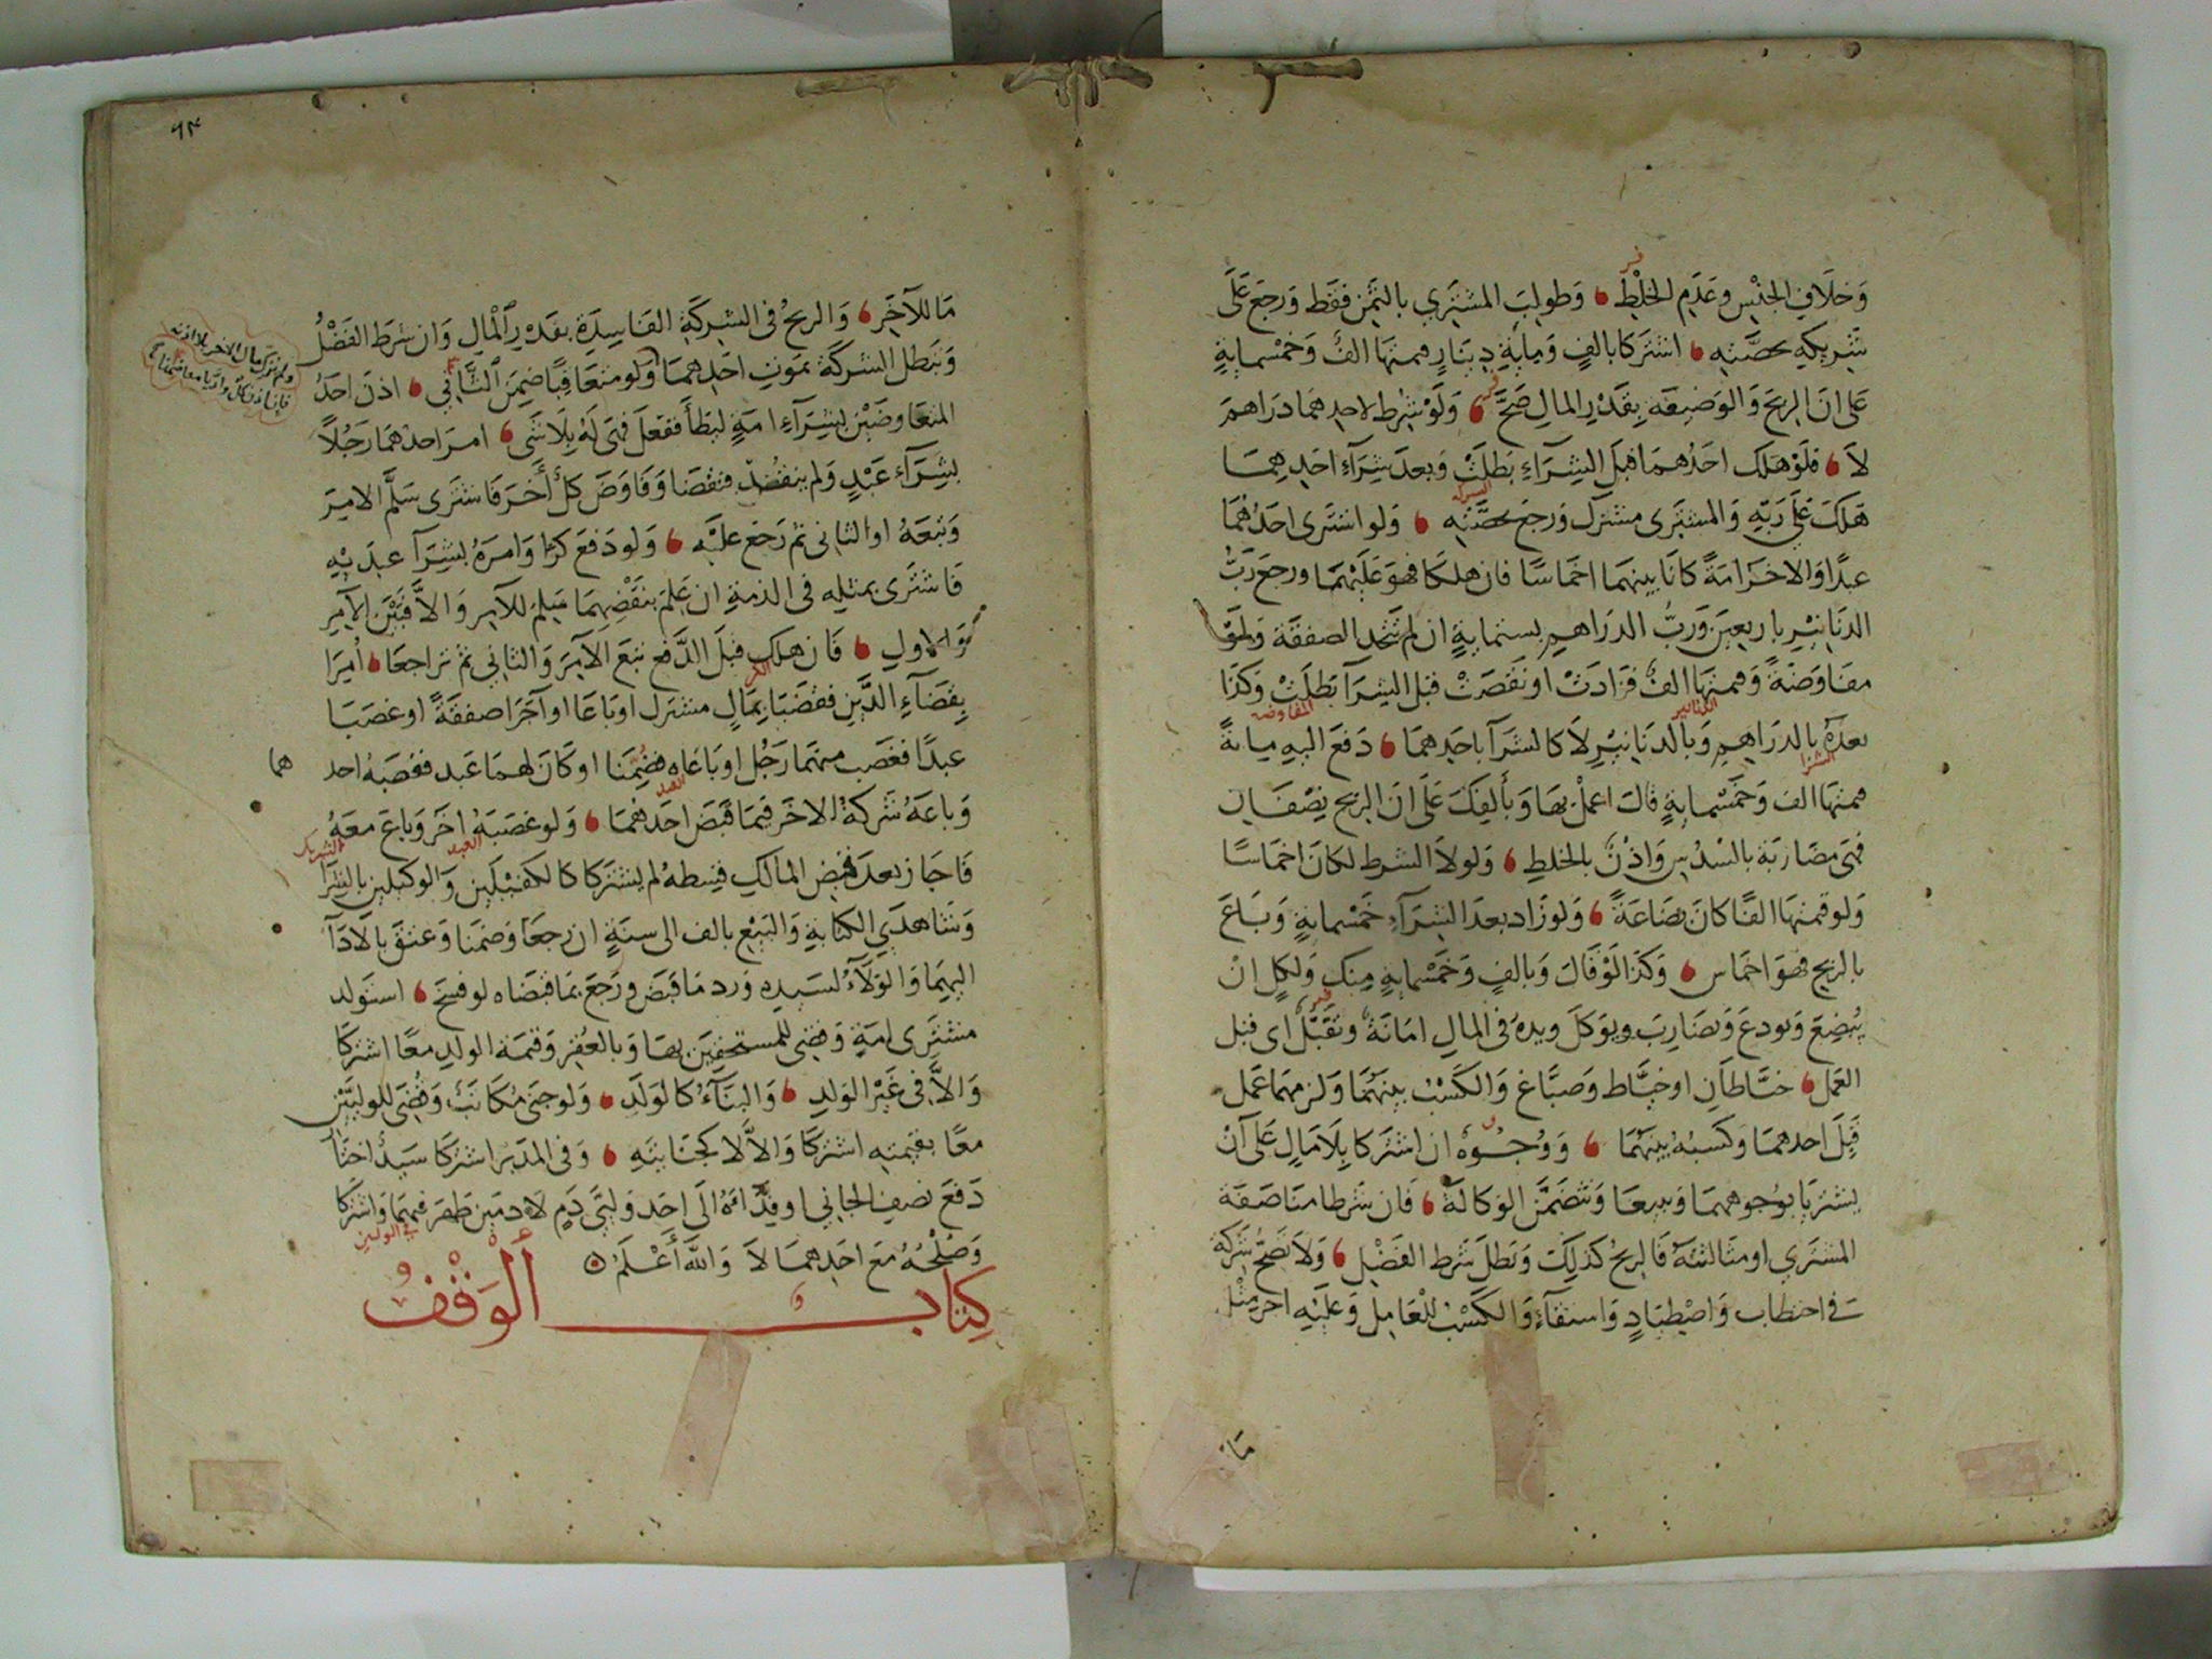 وَخلَافِ الجنْسِ وعَدَمِ الخلْطِ وَطولِبَ المشترِي بالثمَنِ فقَط وَرجعَ عَلَى
شَرِيكِهِ بحصَّتِهِ اشترَكا بالفٍ وَمِايةِ دِينَارٍ قيمتهَا الفٌ وَخَمْسمايةٍ
عَلى انَ الربحَ وَالوَضِيعَة بِقَدْرِ المالِ صَحَّ وَلَوْ شرِط لاحدِهمَا دَرَاهمَ
لَا فلَوْ هَلكَ احَدُهمَا قبلَ الشِرَاءِ بَطلَتْ وَبعدَ شِرَاءِ احَدِهِمَا
هَلكَ عَلَى رَبّهِ وَالمشترَى مشترَك وَرجعَ بحصَّتِه وَلو اشترَى احَدُهُمَا
عبدًا وَالاخَرُ امَةً كانَا بينهمَا اخمَاسًا فان هلكَا فهوَ عَليْهمَا ورجعَ ربُّ
الدنَانِيْرِ باربعِينَ وَربُّ الدرَاهِمِ بستمايةٍ ان لم تتّحد الصفقَة وَلوْ
مفاوَضَةً وَقيمتهَا الفٌ فزَادَتْ اوْ نَقصَتْ قبل الشرَآ بَطلَتْ وَكذَا
بعدَهُ بالدرَاهِمِ وَبالدنَانيْرِ لَا كالشرَآ باحَدِهمَا دَفعَ اليهِ مِايةً
قيمتهَا الف وَخَمْسمايةٍ قالَ اعملْ بهَا وَبألفِكَ عَلَى انَ الربحَ نِصْفَان
فهيَ مضَارَبَة بالسُدُسِ وَاذْنٌ بالخلطِ وَلولَا الشرط لكانَ اخمَاسًا
وَلو قيمتهَا الفًا كانَ بضَاعَةً وَلو زَاد بعدَ الشِرَآءِ خَمْسمايةٍ وَبَاعَ
بالربحِ فهوَ اخمَاس وَكذَا لَوْ قَالَ وَبالفٍ وَخَمْسمايةٍ مِنكَ وَلكلٍ انْ
يُبْضِعَ وَيودعَ وَيضَارِبَ ويوَكلَ ويدهُ فى المالِ امَانَة وتقَبُّلٌ اى قبل
العَمل خيَّاطَانِ او خيَّاط وَصبَّاغ وَالكَسْبُ بينهُمَا وَلزمهمَا عَمل
قَبِلَ احدهمَا وَكسبُه بينَهُمَا وَوُجُوْهٌ ان اشترَكا بِلَا مَالٍ عَلَى اَنْ
يشترِيَا بوُجوههمَا وَيبيعَا وَتَضَمَّنَ الوَكالَةَ فَان شَرطا منَاصَفة
المشترَي او مثَالثتهُ فَالربحُ كذلِكَ وَبَطلَ شَرط الفَضْلِ وَلَا تَصحّ شركَة
فى احتطاب وَاصْطيَادٍ وَاستقآءٍ وَالكَسْبُ للْعَامِلِ وَعليْهِ اجر مثْل
مَا
٦٣
مَا للآخَرِ وَالربحُ فى الشِركَةِ الفَاسِدَةِ بقَدْرِ المْالِ وَان شرطَ الفَضْلُ
وَتبطل الشركَة بمَوتِ احَدِهمَا وَلو متعَاقبًا ضمِنَ الثَّانِي اذنَ احَدُ
المتفَاوضَيْن بشِرَآءِ امَةٍ ليَطَأ ففعلَ فهىَ لَهُ بِلَا شَئٍ امرَ احدهمَا رَجُلاً
بشِرَآءِ عَبْدٍ وَلم ينقُدْ فنقضَا وَفَاوَضَ كلٌ أخَرَ فَاشترَى سَلّمَ الامِيرَ
وَتبعَهُ او الثانِى ثم رَجعَ عليْه وَلو دَفعَ كرًا وَامرَهُ بشرَآ عبدٍ بِهِ
فَاشترَى بمثلِه فى الذمةِ ان عَلمَ بنقْضِهِمَا سَلِمَ للآمِرِ وَالاَّ فبَيْنَ الآمِرِ
وَالاولِ فَان هلك قبلَ الدَّفعِ تبعَ الآمِرَ وَالثانِي ثم تراجعَا اُمِرَا
بِقضَآءِ الدَّيْنِ فقضَيَا بِمَالٍ مشترَك او بَاعَا او آجَرَا صفقَةً او غصَبَا
عبدًا فغصَب منهمَا رَجُل او بَاعَاه فضُمِّنَا او كَانَ لهمَا عَبد فغصبَهُ احد
هما
وَبَاعَهُ شركهُ الاخَر فيمَا قَبَضَ احَدهُمَا وَلو غصَبَهُ اخَر وَبَاعَ معَهُ
فَاجَازَ بعدَ قبْضِ المالكِ قِسطهُ لم يشترِكا كالكفيْلَينِ وَالوكيلينِ بالشرَا
وَشاهدَيِ الكتَابةِ وَالبَيْعِ بالف الى سنَةٍ ان رجعَا وَضَمَنا وَعتقَ بالاَدَآ
اليهِمَا وَالوَلَآءُ لسَيدِه وَرد مَا قَبَضَ وَرَجَعَ بمَا قبضَاه لو فسخَ استَولد
مشترِى امَةٍ وَقضِى للمستحقِيَن بهَا وَبالعُقْرِ وَقيمَة الولدِ معًا اشترَكا
وَالاَّ فى غَيْرِ الوَلدِ وَالبنَآءُ كالوَلَدِ وَلو جنَى مُكاتَبٌ وَقُضِىَ للوليَّيْنِ
معًا بقيمتهِ اشترَكا وَالاَّ لَا كجنَايتهِ وَفى المدَبَّرِ اشترَكا
دَفعَ نصفِ الجانِي او فِدَاءهُ الَى احَدِ وَليَّى دَمٍ
وَصُلْحُهُ مَعَ احَدِهمَا لَا وَاللَّه أَعْلَمُ
كِتَابُ الْوَقْفِ